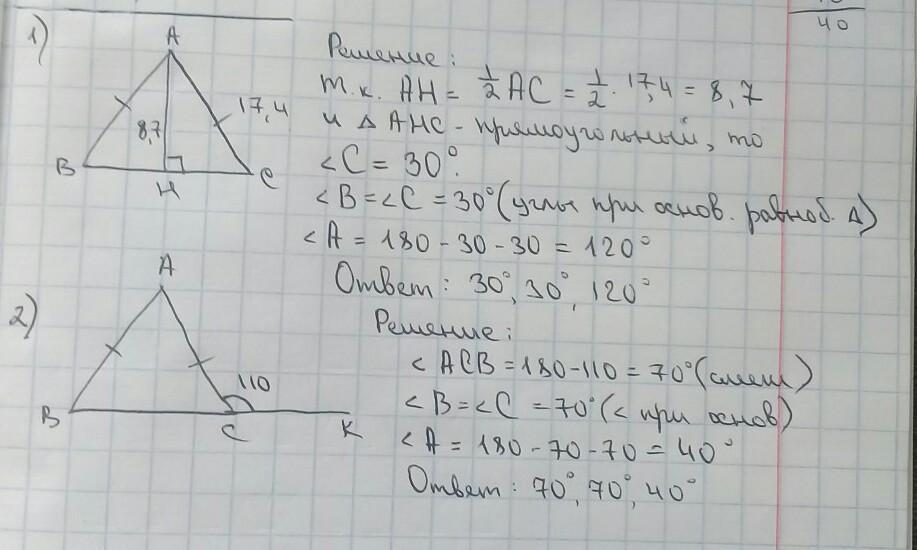 40
1)
A
17,4
8,7
B
H
C
Решение:
т.к. AH = 1/2 AC = 1/2 · 17,4 = 8,7
и △ AHC - прямоугольный, то
∠C = 30°.
∠B = ∠C = 30° (углы при основ. равноб. △)
∠A = 180 - 30 - 30 = 120°
Ответ: 30°, 30°, 120°
2)
A
110
B
C
K
Решение:
∠ ACB = 180-110 = 70° (смеж)
∠B = ∠C = 70° (∠ при основ)
∠A = 180 - 70 - 70 = 40°
Ответ: 70°, 70°, 40°